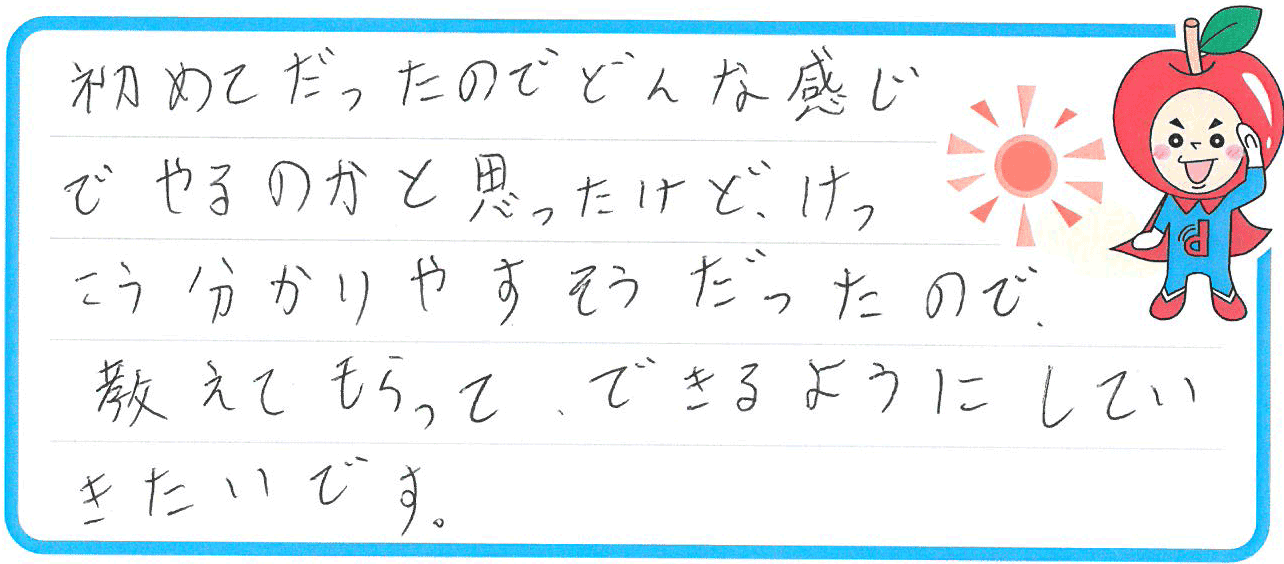 初めてだったのでどんな感じ
でやるのかと思ったけど、けっ
こう分かりやすそうだったので、
教えてもらって、できるようにしてい
きたいです。